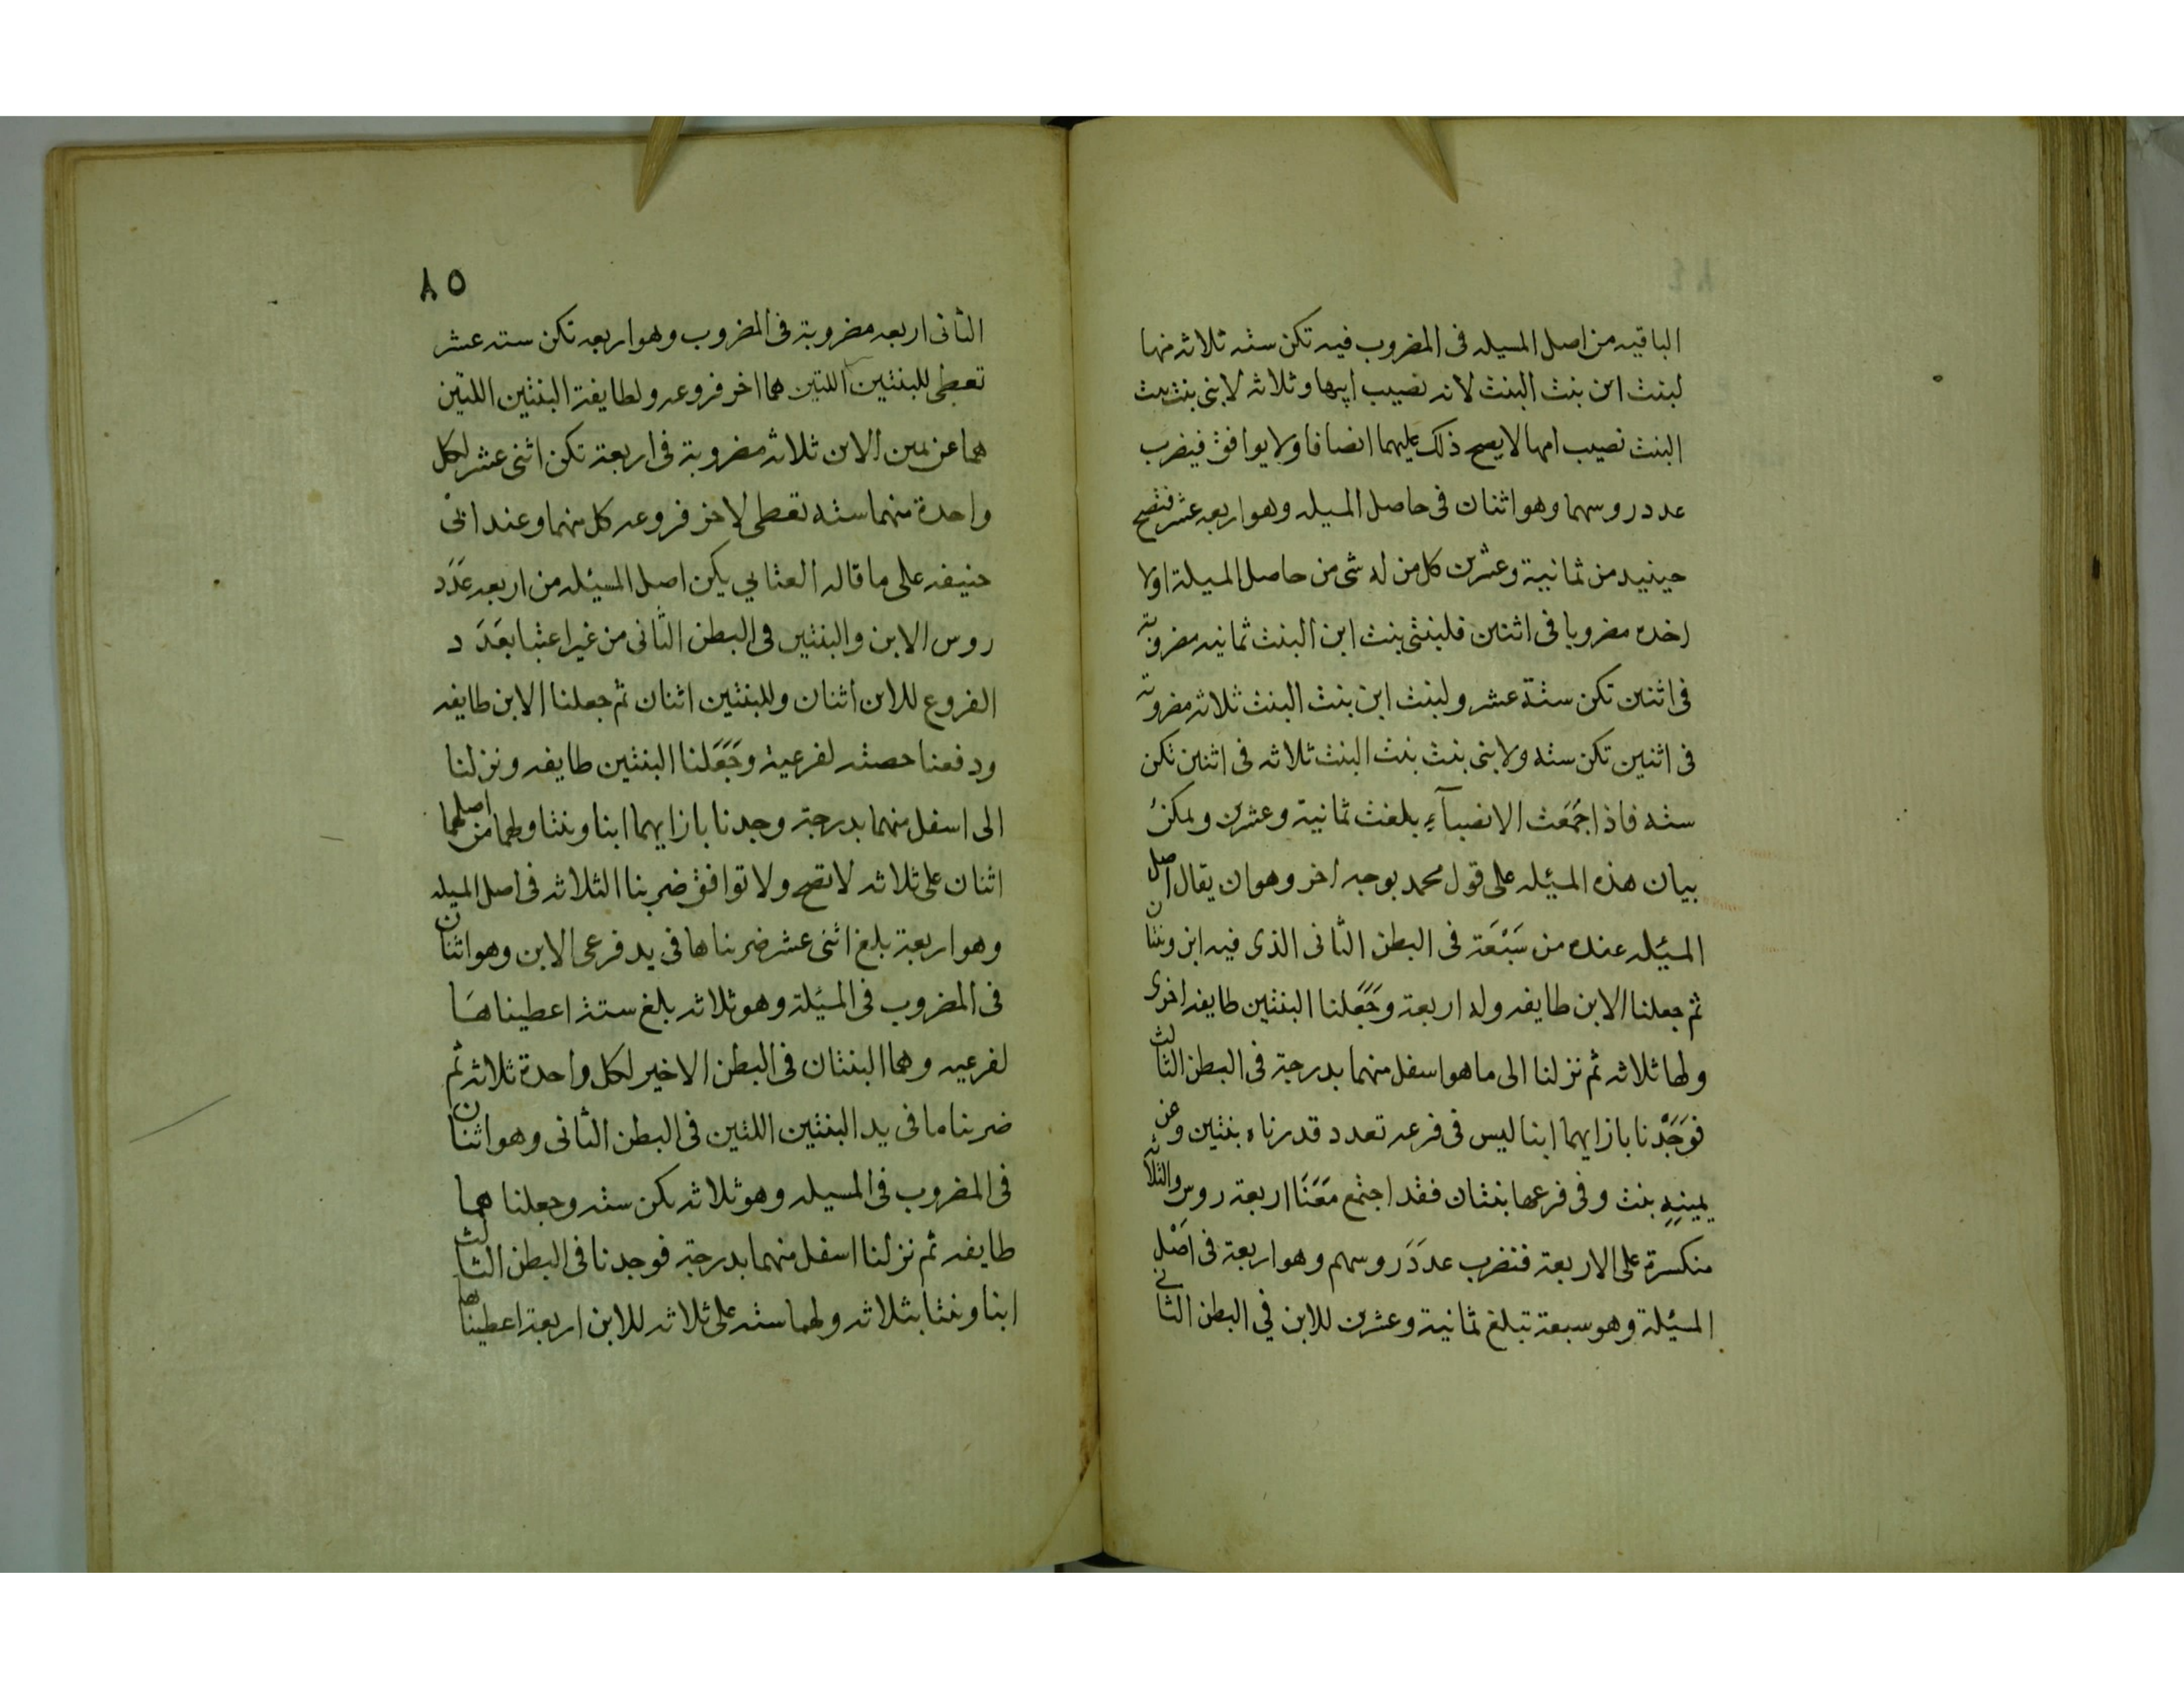 الباقيه من اصل المسيله فى المضروب فيه تكن سته ثلاثه منها
لبنت ابن بنت البنت لانه نصيب ابيها وثلاثه لابنى بنت بنت
البنت نصيب امها لايصح ذلك عليهما انصافا ولا يوافق فيضرب
عدد روسهما وهو اثنان فى حاصل المسيله وهو اربعه عشر فتصح
حينيد من ثمانية وعشرين كل من له شى من حاصل المسيلة اولا
اخده مضروبا فى اثنين فلبنتى بنت ابن البنت ثمانيه مضروبة
فى اثنين تكن ستة عشر ولبنت ابن بنت البنت ثلاثه مضروبة
فى اثنين تكن سته ولابنى بنت بنت البنت ثلاثه فى اثنين تكن
سته فاذا جَمَعَت الانصبآءِ بلغت ثمانية وعشرين ويمكن
بيان هذه المسئله على قول محمد بوجه اخر وهو ان يقال اصل
المسئله عنده من سَبْعَة فى البطن الثانى الذى فيه ابن وبنتان
ثم جعلنا الابن طايفه وله اربعة وجَعَلنا البنتين طايفه اخرى
ولها ثلاثه ثم نزلنا الى ما هو اسفل منهما بدرجة فى البطن الثالث
فوَجَدْنا بازايهما ابنا ليس فى فرعه تعدد قدرناه بنتين وعن
يمينِهِ بنت وفى فرعها بنتان فقد اجتمع مَعَنَا اربعة روس والثلاثه
منكسرة على الاربعة فنضرب عدَدَ روسهم وهو اربعة فى اصْل
المسئلة وهو سبعة تبلغ ثمانية وعشرين للابن في البطن الثاني
٨٥
الثانى اربعه مضروبة فى المضروب وهو اربعه تكن سته عشر
تعطى للبنتين اللتين هما اخر فروعه ولطايفة البنتين اللتين
هما عن يمين الابن ثلاثه مضروبة فى اربعة تكن اثنى عشر لكل
واحدة منهما سته تعطى لاخر فروعه كل منهما وعند ابى
حنيفه على ما قاله العتابي يكن اصل المسئله من اربعه عَدَد
روس الابن والبنتين فى البطن الثانى من غير اعتبا بعَدَد
الفروع للابن اثنان وللبنتين اثنان ثم جعلنا الابن طايفه
ودفعنا حصته لفرعية وجَعَلنا البنتين طايفه ونزلنا
الى اسفل منهما بدرجة وجدنا بازايهما ابنا وبنتا ولهما من اصلهما
اثنان على ثلاثه لاتصح ولا توافق ضربنا الثلاثه فى اصل المسيله
وهو اربعة بلغ اثنى عشر ضربناها فى يد فرعى الابن وهو اثنان
فى المضروب فى المسَئلة وهو ثلاثه بلغ ستة اعطيناهَا
لفرعيه وهما البنتان فى البطن الاخير لكل واحدة ثلاثه ثم
ضربنا ما فى يد البنتين اللتين فى البطن الثانى وهو اثنان
فى المضروب فى المسيله وهو ثلاثه يكن سته وجعلنا هما
طايفه ثم نزلنا اسفل منهما بدرجة فوجدنا فى البطن الثالث
ابنا وبنتا بثلاثه ولهما سته على ثلاثه للابن اربعة اعطيناها